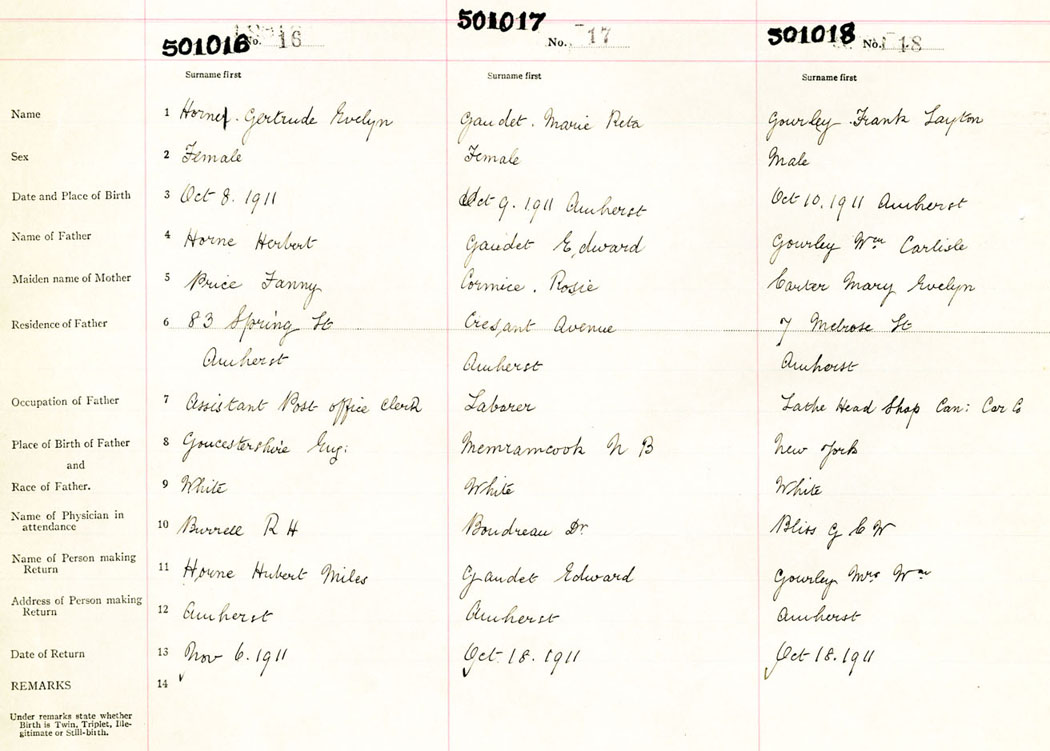 501016 No. 16 501017 No. 17 501018 No. 18
Surname first Surname first Surname first
Name 1 Horne. Gertrude Evelyn Gaudet. Marie Reta Gourley. Frank Layton
Sex 2 Female Female Male
Date and Place of Birth 3 Oct 8. 1911 Oct 9. 1911 Amherst Oct 10. 1911 Amherst
Name of Father 4 Horne Herbert Gaudet Edward Gourley Wm Carlisle
Maiden name of Mother 5 Price Fanny Cormice. Rosie Carter Mary Evelyn
Residence of Father 6 83 Spring St Cresant Avenue 7 Melrose St
Amherst Amherst Amherst
Occupation of Father 7 Assistant Post office Clerk Laborer Lathe Head Shop Can: Car Co
Place of Birth of Father 8 Goucestershire Eng: Memramcook N B New York
and
Race of Father. 9 White White White
Name of Physician in
attendance 10 Burrell R H Boudreau Dr Bliss G C W
Name of Person making
Return 11 Horne Hubert Miles Gaudet Edward Gourley Mrs Wm
Address of Person making
Return 12 Amherst Amherst Amherst
Date of Return 13 Nov 6. 1911 Oct. 18. 1911 Oct 18. 1911
REMARKS 14
Under remarks state whether
Birth is Twin, Triplet, Ille-
gitimate or Still-birth.